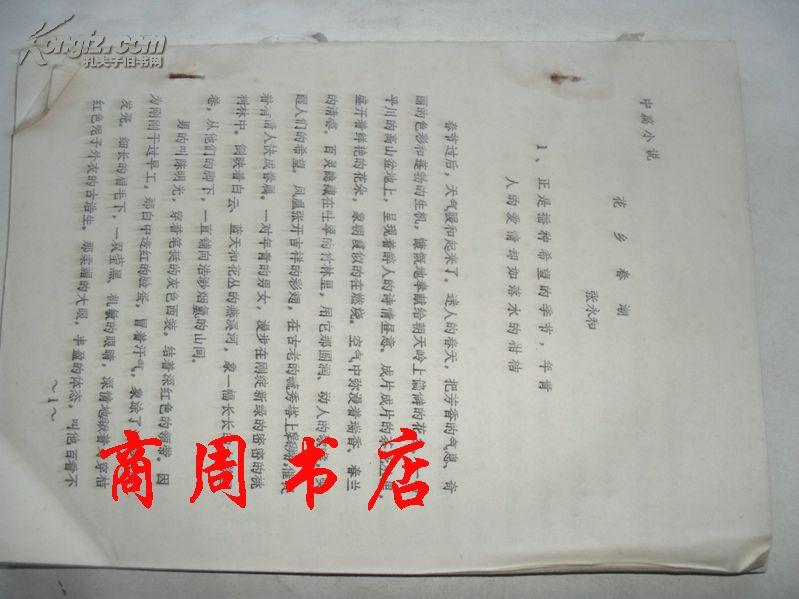 中篇小说
花乡春潮
张永和
1、正是播种希望的季节，年青
人的爱情却如落水的柑桔
春节过后，天气暖和起来了。迷人的春天，把芳香的气息、奇
丽的色彩和蓬勃的生机，慷慨地奉献给朝天岭上偏僻的花
平川的高山盆地上，呈现着醉人的诗情昼意。成片成片的
盛开着鲜艳的花朵，象朝霞似的在燃烧。空气中弥漫着瑞香、春兰
的清馨。百灵隐藏在吐翠的竹林里，用它那圆润、动人的
醒人们的希望。凤凰张开吉祥的彩翅，在古老的毓秀塔上
着有情人快成眷属。一对年青的男女，漫步在刚绽新绿的密密的桃
树林中。倒映着白云、蓝天和花丛的燕溪河，象一幅长长
卷，从他们的脚下，一直铺向浩渺烟氲的山间。
男的叫陈明光，穿着笔挺的灰色西装，结着深红色的领带。因
为刚刚干过早工，那白中透红的脸蛋，冒着汗气，象涂了
发亮。细长的眉毛下，一双莹黑、机敏的眼睛，深情地瞅着身穿桔
红色呢子外衣的古浩生。那柔媚的大眼，丰盈的体态，叫他百看不
～1～
Kongfz.com
孔夫子旧书网
商周书店